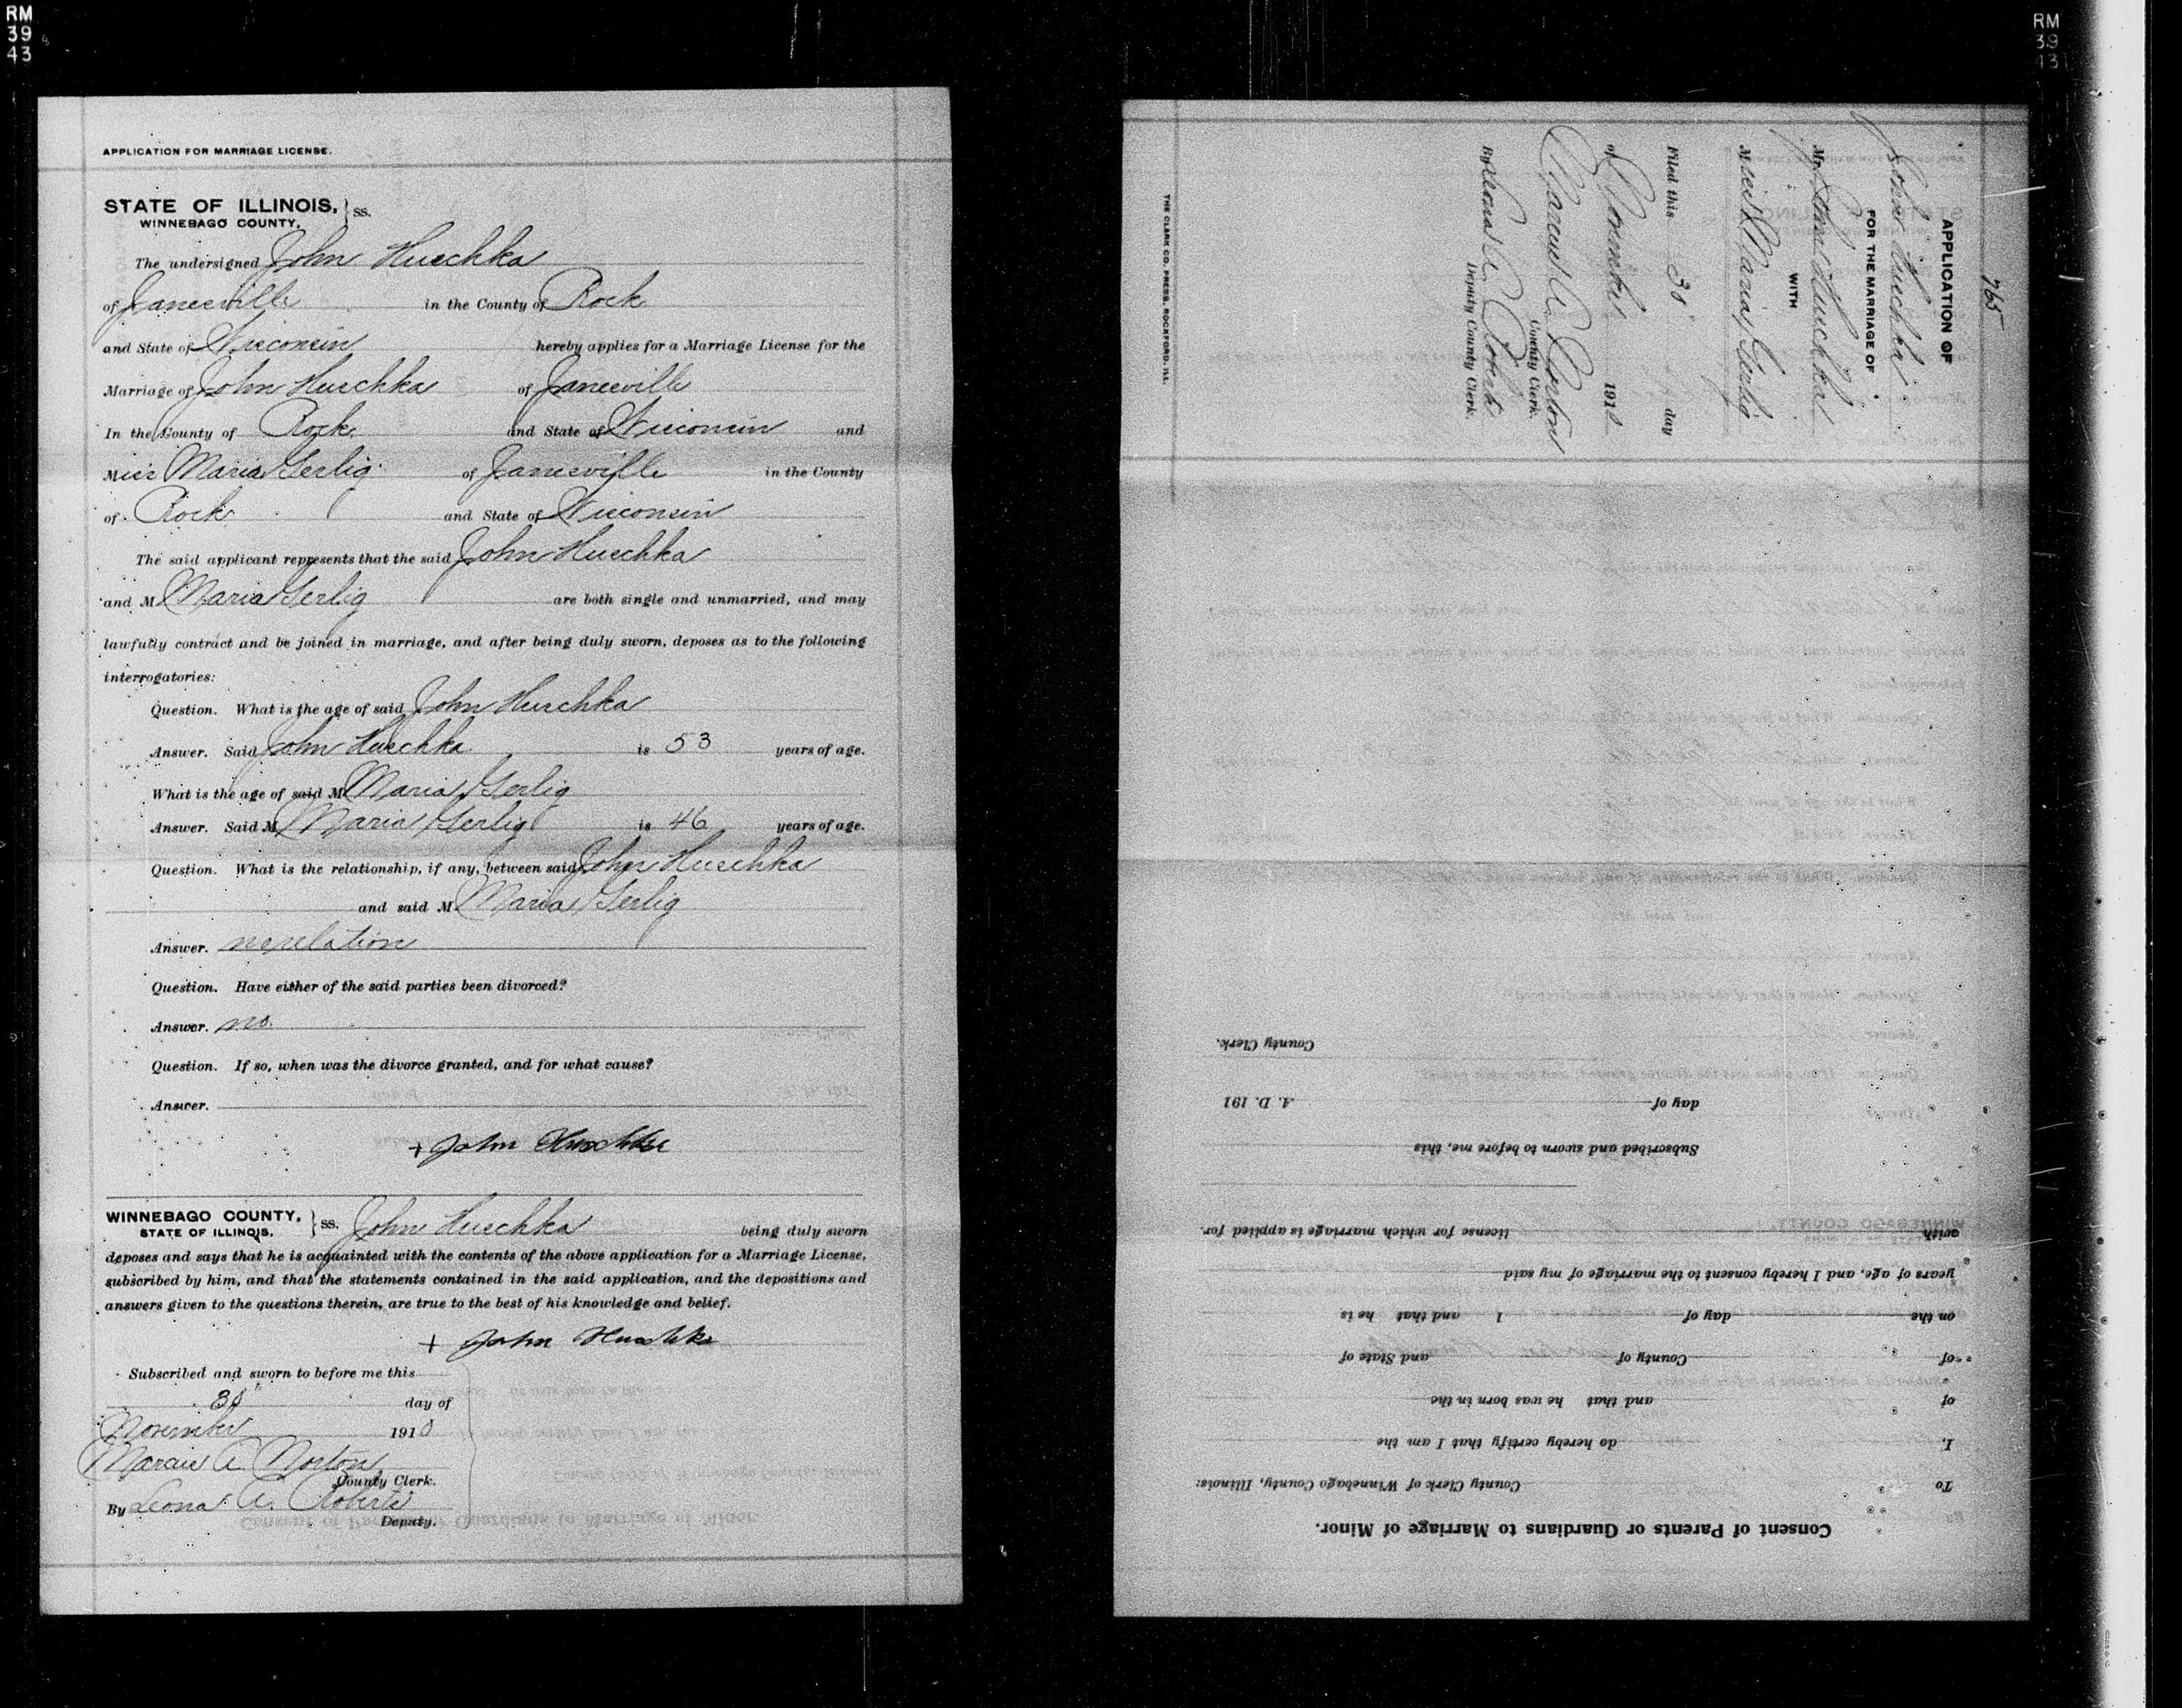 RM
39
43
APPLICATION FOR MARRIAGE LICENSE.
STATE OF ILLINOIS, } ss.
WINNEBAGO COUNTY.
The undersigned John Huschka
of Janesville in the County of Rock
and State of Wisconsin hereby applies for a Marriage License for the
Marriage of John Huschka of Janesville
In the County of Rock and State of Wisconsin and
Miss Maria Gerlig of Janesville in the County
of Rock and State of Wisconsin
The said applicant represents that the said John Huschka
and M Maria Gerlig are both single and unmarried, and may
lawfully contract and be joined in marriage, and after being duly sworn, deposes as to the following
interrogatories:
Question. What is the age of said John Huschka
Answer. Said John Huschka is 53 years of age.
What is the age of said M Maria Gerlig
Answer. Said M Maria Gerlig is 46 years of age.
Question. What is the relationship, if any, between said John Huschka
and said M Maria Gerlig
Answer. no relation
Question. Have either of the said parties been divorced?
Answer. no.
Question. If so, when was the divorce granted, and for what cause?
Answer.
+ John Huschka
WINNEBAGO COUNTY, } ss. John Huschka being duly sworn
STATE OF ILLINOIS.
deposes and says that he is acquainted with the contents of the above application for a Marriage License,
subscribed by him, and that the statements contained in the said application, and the depositions and
answers given to the questions therein, are true to the best of his knowledge and belief.
+ John Huschka
Subscribed and sworn to before me this
30" day of
November 1910
Marcus A. Norton
County Clerk.
By Leona A. Roberts
Deputy.
RM
39
43
765
APPLICATION OF
John Huschka
FOR THE MARRIAGE OF
Mr John Huschka
WITH
Miss Maria Gerlig
Filed this 30" day
of November 1910
Marcus A. Norton
County Clerk.
By Leona A. Roberts
Deputy County Clerk.
THE CLARK CO. PRESS, ROCKFORD, ILL.
Consent of Parents or Guardians to Marriage of Minor.
To County Clerk of Winnebago County, Illinois:
I, do hereby certify that I am the
of and that he was born in the
of County of and State of
on the day of 1 and that he is
years of age, and I hereby consent to the marriage of my said
with license for which marriage is applied for.
Subscribed and sworn to before me, this
day of A. D. 191
County Clerk.